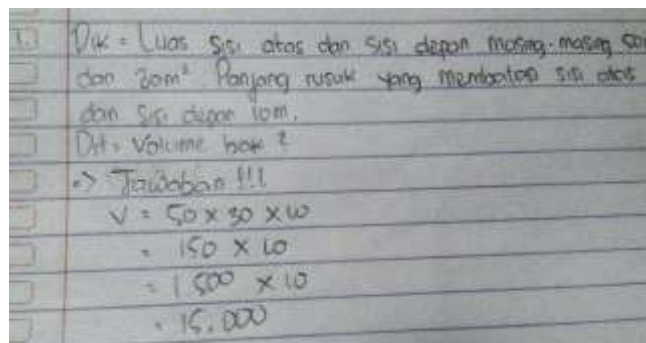 1. Dik = Luas sisi atas dan sisi depan masing-masing 50
dan 30m² Panjang rusuk yang membatasi sisi atas
dan sisi depan 10m.
Dit = Volume bak ?
=> Jawaban !!!
V = 50 x 30 x 10
= 150 x 10
= 1500 x 10
= 15.000